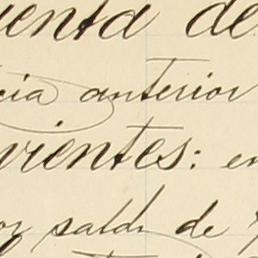 uenta de
cia anterior
vientes: en
or saldo de